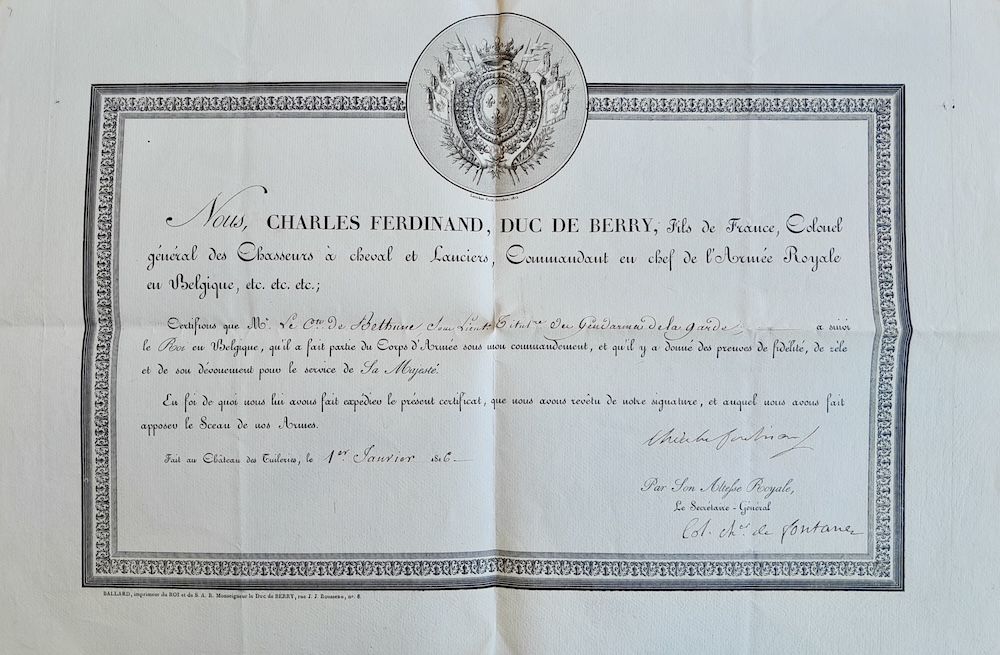 Nous, CHARLES FERDINAND, DUC DE BERRY, Fils de France, Colonel
général des Chasseurs à cheval et Lanciers, Commandant en chef de l'Armée Royale
en Belgique, etc. etc. etc.;
Certifions que Mr. Le Cte. de Bethune Sous Lieut. Titulre. des Gendarmes de la garde a suivi
le Roi en Belgique, qu'il a fait partie du Corps d'Armée sous mon commandement, et qu'il y a donné des preuves de fidélité, de zèle
et de son dévouement pour le service de Sa Majesté.
En foi de quoi nous lui avons fait expédier le présent certificat, que nous avons revêtu de notre signature, et auquel nous avons fait
apposer le Sceau de nos Armes.
Fait au Château des Tuileries, le 1er Janvier 1816
Charles ferdinand
Par Son Altesse Royale,
Le Secrétaire-Général
Col. cher. de fontane
BALLARD, imprimeur du ROI et de S. A. R. Monseigneur le Duc de BERRY, rue J. J. Rousseau, n°. 8.